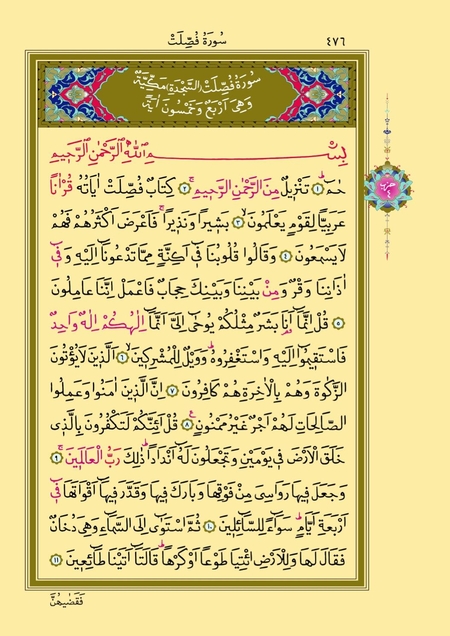 ٤٧٦ سُورَةُ فُصِّلَتْ
سُورَةُ فُصِّلَتْ (اَلسَّجْدَةِ) مَكِّيَّةٌ
وَهِيَ اَرْبَعٌ وَخَمْسُونَ اٰيَةً
بِسْمِ اللّٰهِ الرَّحْمٰنِ الرَّحِيمِ
حٰمٓ ﴿١﴾ تَنْزِيلٌ مِنَ الرَّحْمٰنِ الرَّحِيمِ ﴿٢﴾ كِتَابٌ فُصِّلَتْ اٰيَاتُهُ قُرْاٰنًا
عَرَبِيًّا لِقَوْمٍ يَعْلَمُونَ ﴿٣﴾ بَشِيرًا وَنَذِيرًا فَاَعْرَضَ اَكْثَرُهُمْ فَهُمْ
لَا يَسْمَعُونَ ﴿٤﴾ وَقَالُوا قُلُوبُنَا فِي اَكِنَّةٍ مِمَّا تَدْعُونَا اِلَيْهِ وَفِي
اٰذَانِنَا وَقْرٌ وَمِنْ بَيْنِنَا وَبَيْنِكَ حِجَابٌ فَاعْمَلْ اِنَّنَا عَامِلُونَ
﴿٥﴾ قُلْ اِنَّمَا اَنَا بَشَرٌ مِثْلُكُمْ يُوحٰى اِلَيَّ اَنَّمَا اِلٰهُكُمْ اِلٰهٌ وَاحِدٌ
فَاسْتَقِيمُوا اِلَيْهِ وَاسْتَغْفِرُوهُ وَوَيْلٌ لِلْمُشْرِكِينَ ﴿٦﴾ اَلَّذِينَ لَا يُؤْتُونَ
الزَّكٰوةَ وَهُمْ بِالْاٰخِرَةِ هُمْ كَافِرُونَ ﴿٧﴾ اِنَّ الَّذِينَ اٰمَنُوا وَعَمِلُوا
الصَّالِحَاتِ لَهُمْ اَجْرٌ غَيْرُ مَمْنُونٍ ﴿٨﴾ قُلْ اَئِنَّكُمْ لَتَكْفُرُونَ بِالَّذِي
خَلَقَ الْاَرْضَ فِي يَوْمَيْنِ وَتَجْعَلُونَ لَهُ اَنْدَادًا ذٰلِكَ رَبُّ الْعَالَمِينَ ﴿٩﴾
وَجَعَلَ فِيهَا رَوَاسِيَ مِنْ فَوْقِهَا وَبَارَكَ فِيهَا وَقَدَّرَ فِيهَا اَقْوَاتَهَا فِي
اَرْبَعَةِ اَيَّامٍ سَوَاءً لِلسَّائِلِينَ ﴿١٠﴾ ثُمَّ اسْتَوٰى اِلَى السَّمَاءِ وَهِيَ دُخَانٌ
فَقَالَ لَهَا وَلِلْاَرْضِ ائْتِيَا طَوْعًا اَوْ كَرْهًا قَالَتَا اَتَيْنَا طَائِعِينَ ﴿١١﴾
فَقَضٰيهُنَّ